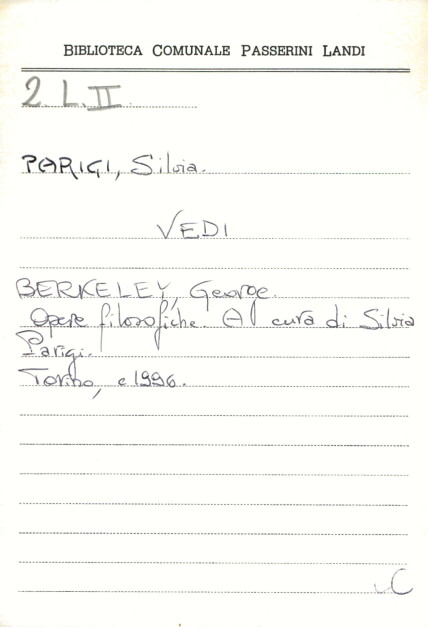 BIBLIOTECA COMUNALE PASSERINI LANDI
2. L. II
PARIGI, Silvia.
VEDI
BERKELEY, George.
Opere filosofiche. A cura di Silvia
Parigi.
Torino, c1996.